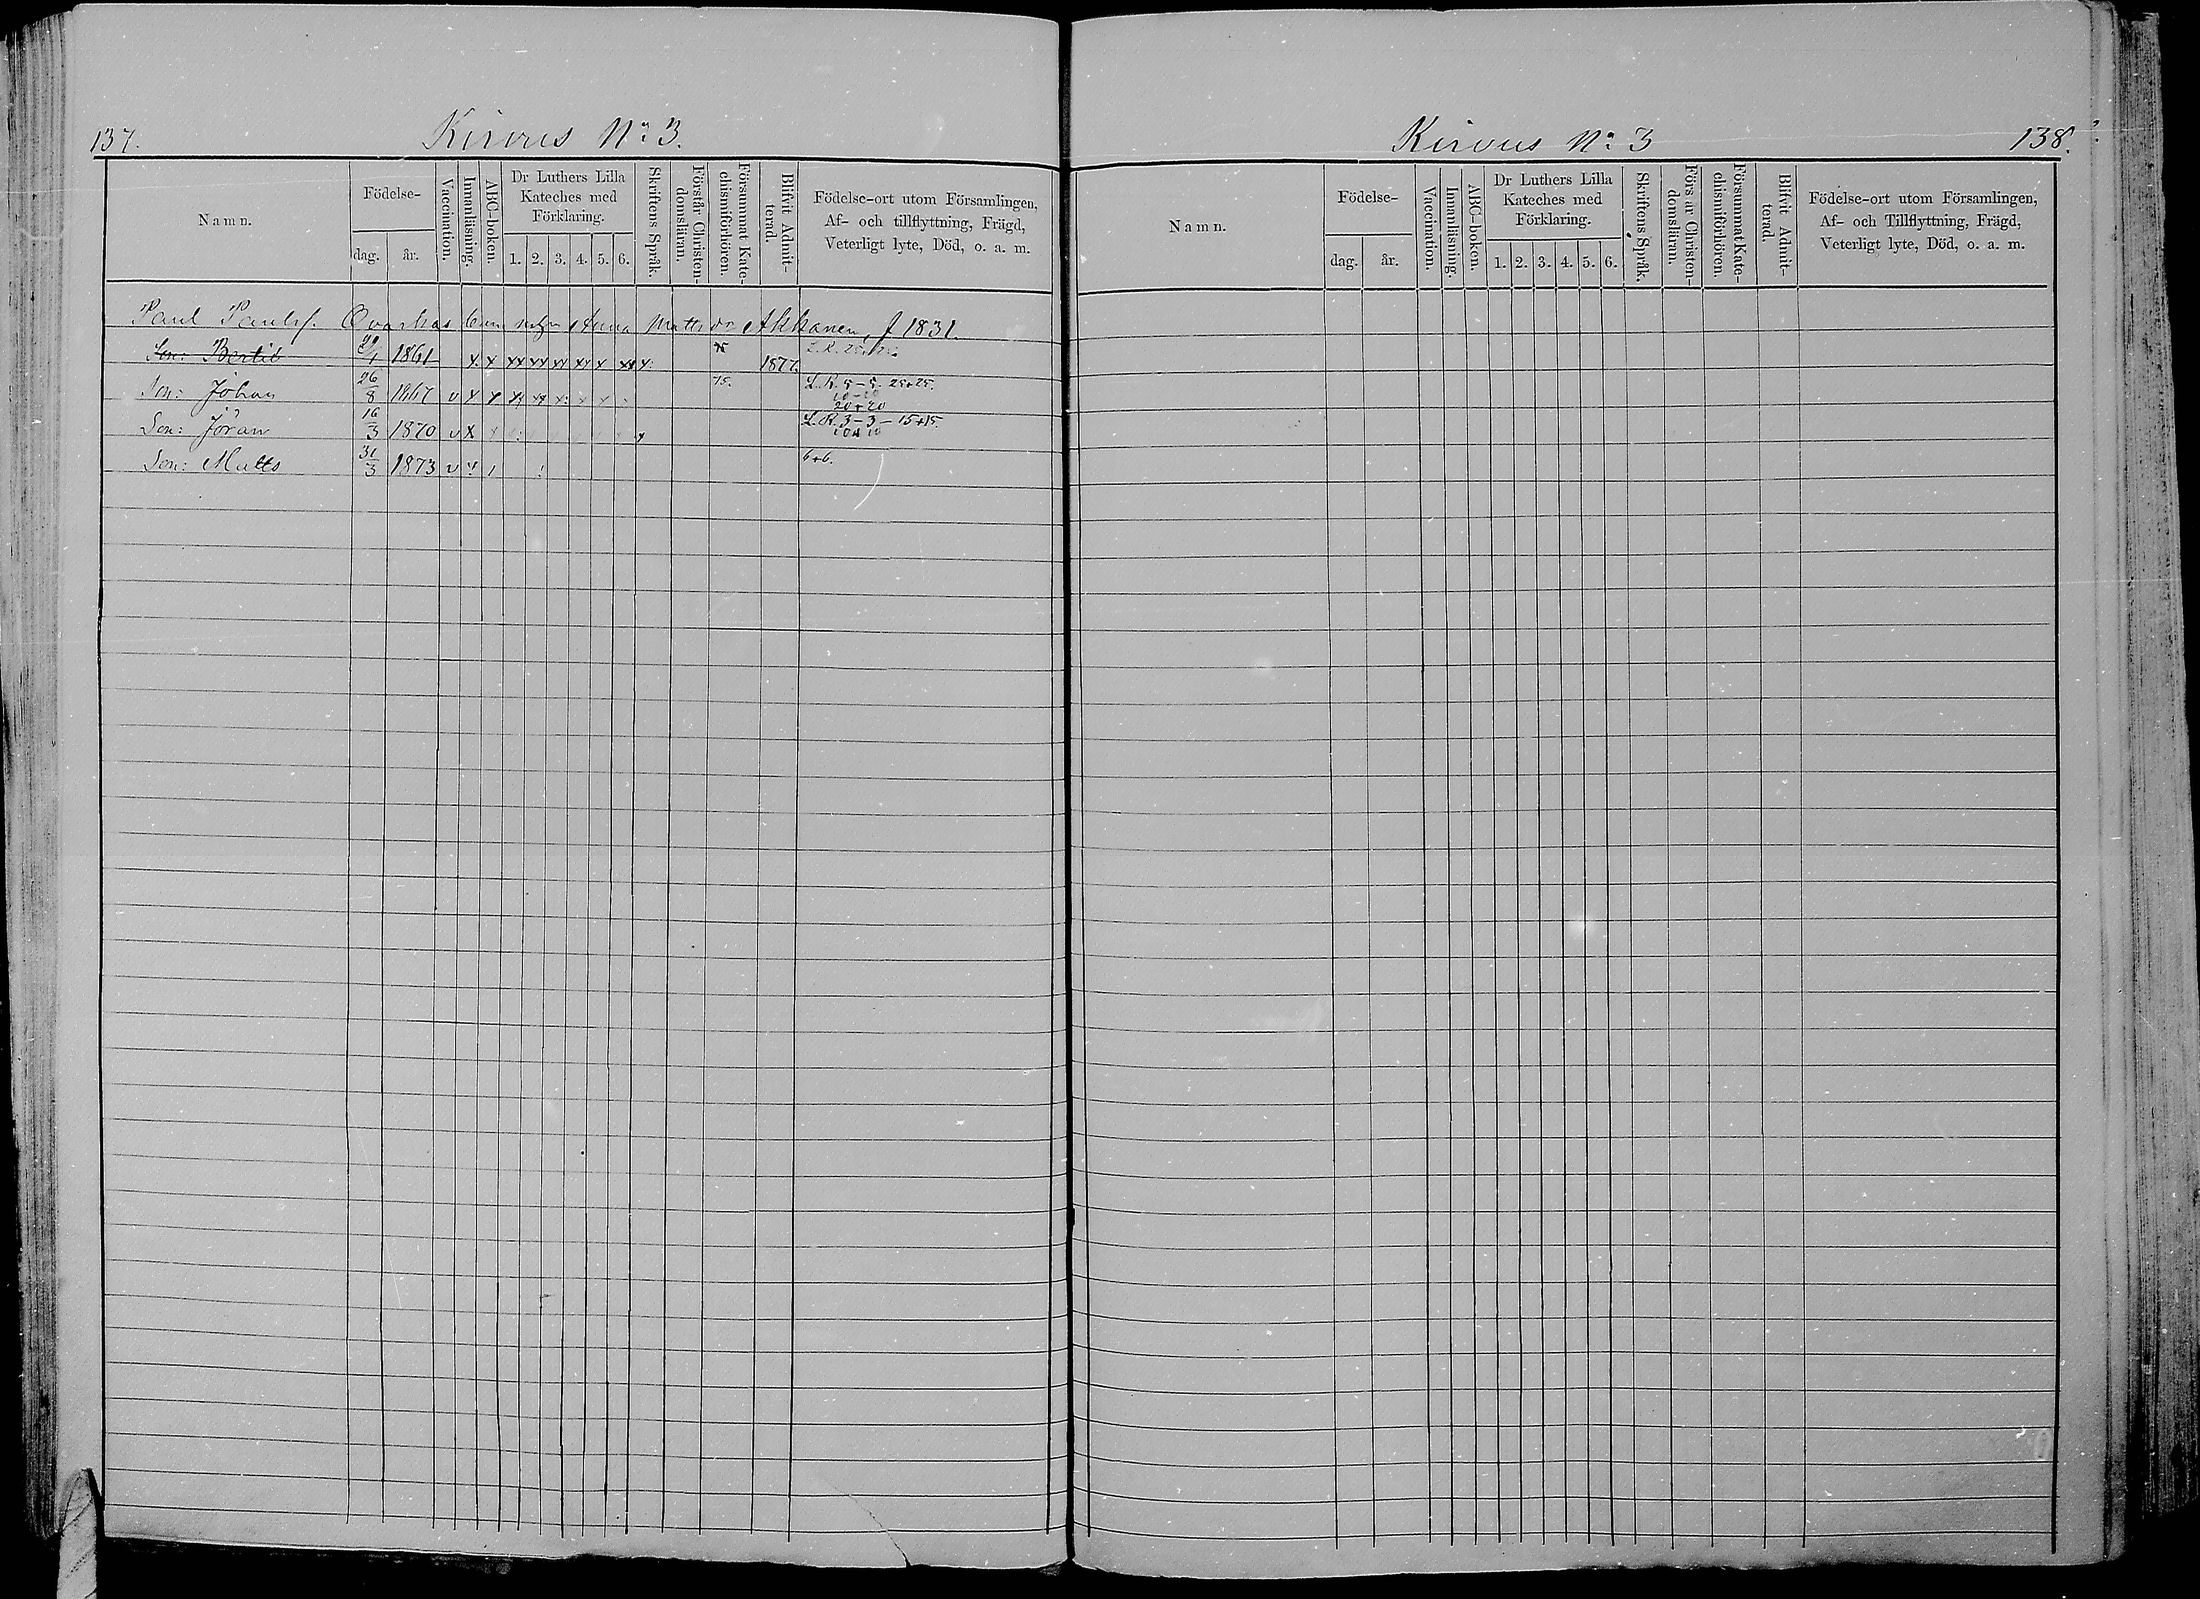 137.
Kirvus No 3.
Namn.
Födelse-
dag.
år.
Vaccination.
Innanläsning.
ABC-boken.
Dr Luthers Lilla
Kateches med
Förklaring.
1. 2. 3. 4. 5. 6.
Skriftens Språk.
Förstår Christen-
domsläran.
Försummat Kate-
chismiförhören.
Blifvit Admit-
terad.
Födelse-ort utom Församlingen,
Af- och tillflyttning, Frägd,
Veterligt lyte, Död, o. a. m.
Paul Paulsf. Anna Matts dr Akkanen, f 1831.
Son: Bertil 1861 x x xx xx xx xx x xx x. 1877.
Son: Johan 26/8 1867 v x x 15. L.R. 5-5. 25+25.
10-10
20+20
Son: Jöran 16/3 1870 v x L.R. 3-3-15+15.
10+10
Son: Matts 31/3 1873 v 6+6.
Kirvus No 3
138.
Namn.
Födelse-
dag.
år.
Vaccination.
Innanläsning.
ABC-boken.
Dr Luthers Lilla
Kateches med
Förklaring.
1. 2. 3. 4. 5. 6.
Skriftens Språk.
Förs ar Christen-
domsläran.
Försummat Kate-
chismiförhören.
Blifvit Admit-
terad.
Födelse-ort utom Församlingen,
Af- och Tillflyttning, Frägd,
Veterligt lyte, Död, o. a. m.